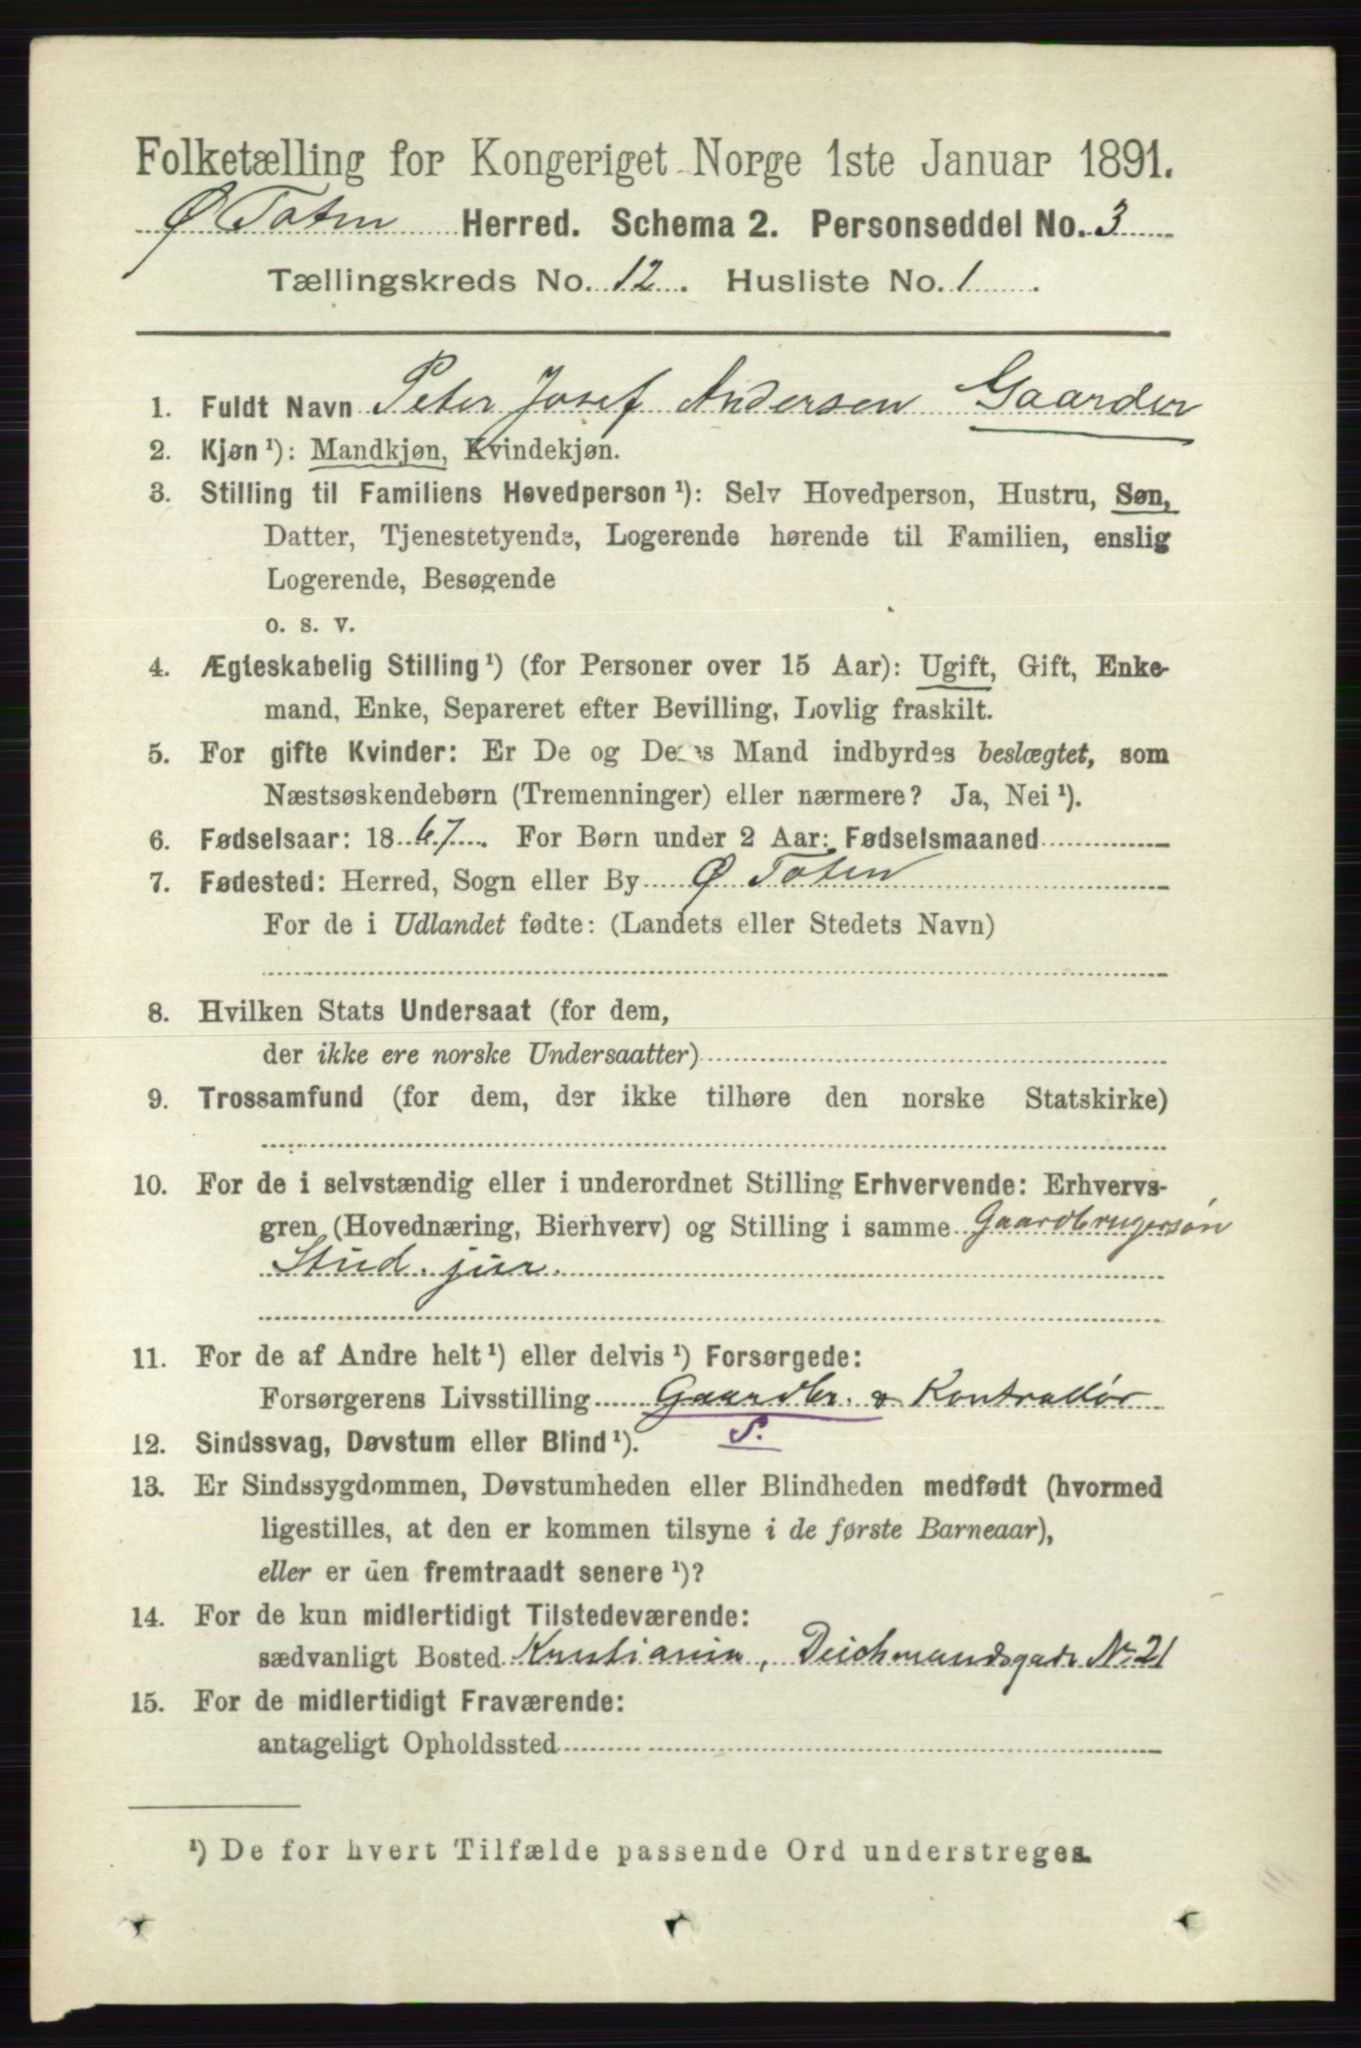 Folketælling for Kongeriget Norge 1ste Januar 1891.
Ø Toten Herred. Schema 2. Personseddel No. 3
Tællingskreds No. 12. Husliste No. 1.
1. Fuldt Navn Peter Josef Andersen Gaarder
2. Kjøn ¹): Mandkjøn, Kvindekjøn.
3. Stilling til Familiens Hovedperson ¹): Selv Hovedperson, Hustru, Søn,
Datter, Tjenestetyende, Logerende hørende til Familien, enslig
Logerende, Besøgende
o. s. v.
4. Ægteskabelig Stilling ¹) (for Personer over 15 Aar): Ugift, Gift, Enke-
mand, Enke, Separeret efter Bevilling, Lovlig fraskilt.
5. For gifte Kvinder: Er De og Deres Mand indbyrdes beslægtet, som
Næstsøskendebørn (Tremenninger) eller nærmere? Ja, Nei ¹).
6. Fødselsaar: 1867. For Børn under 2 Aar: Fødselsmaaned
7. Fødested: Herred, Sogn eller By Ø Toten
For de i Udlandet fødte: (Landets eller Stedets Navn)
8. Hvilken Stats Undersaat (for dem,
der ikke ere norske Undersaatter)
9. Trossamfund (for dem, der ikke tilhøre den norske Statskirke)
10. For de i selvstændig eller i underordnet Stilling Erhvervende: Erhvervs-
gren (Hovednæring, Bierhverv) og Stilling i samme Gaardbrugersøn
Stud. jur.
11. For de af Andre helt ¹) eller delvis ¹) Forsørgede:
Forsørgerens Livsstilling Gaardbr. & Kontrollør
12. Sindssvag, Døvstum eller Blind ¹). S.
13. Er Sindssygdommen, Døvstumheden eller Blindheden medfødt (hvormed
ligestilles, at den er kommen tilsyne i de første Barneaar),
eller er den fremtraadt senere ¹)?
14. For de kun midlertidigt Tilstedeværende:
sædvanligt Bosted Kristiania, Deichmandsgade No 21
15. For de midlertidigt Fraværende:
antageligt Opholdssted
¹) De for hvert Tilfælde passende Ord understreges.